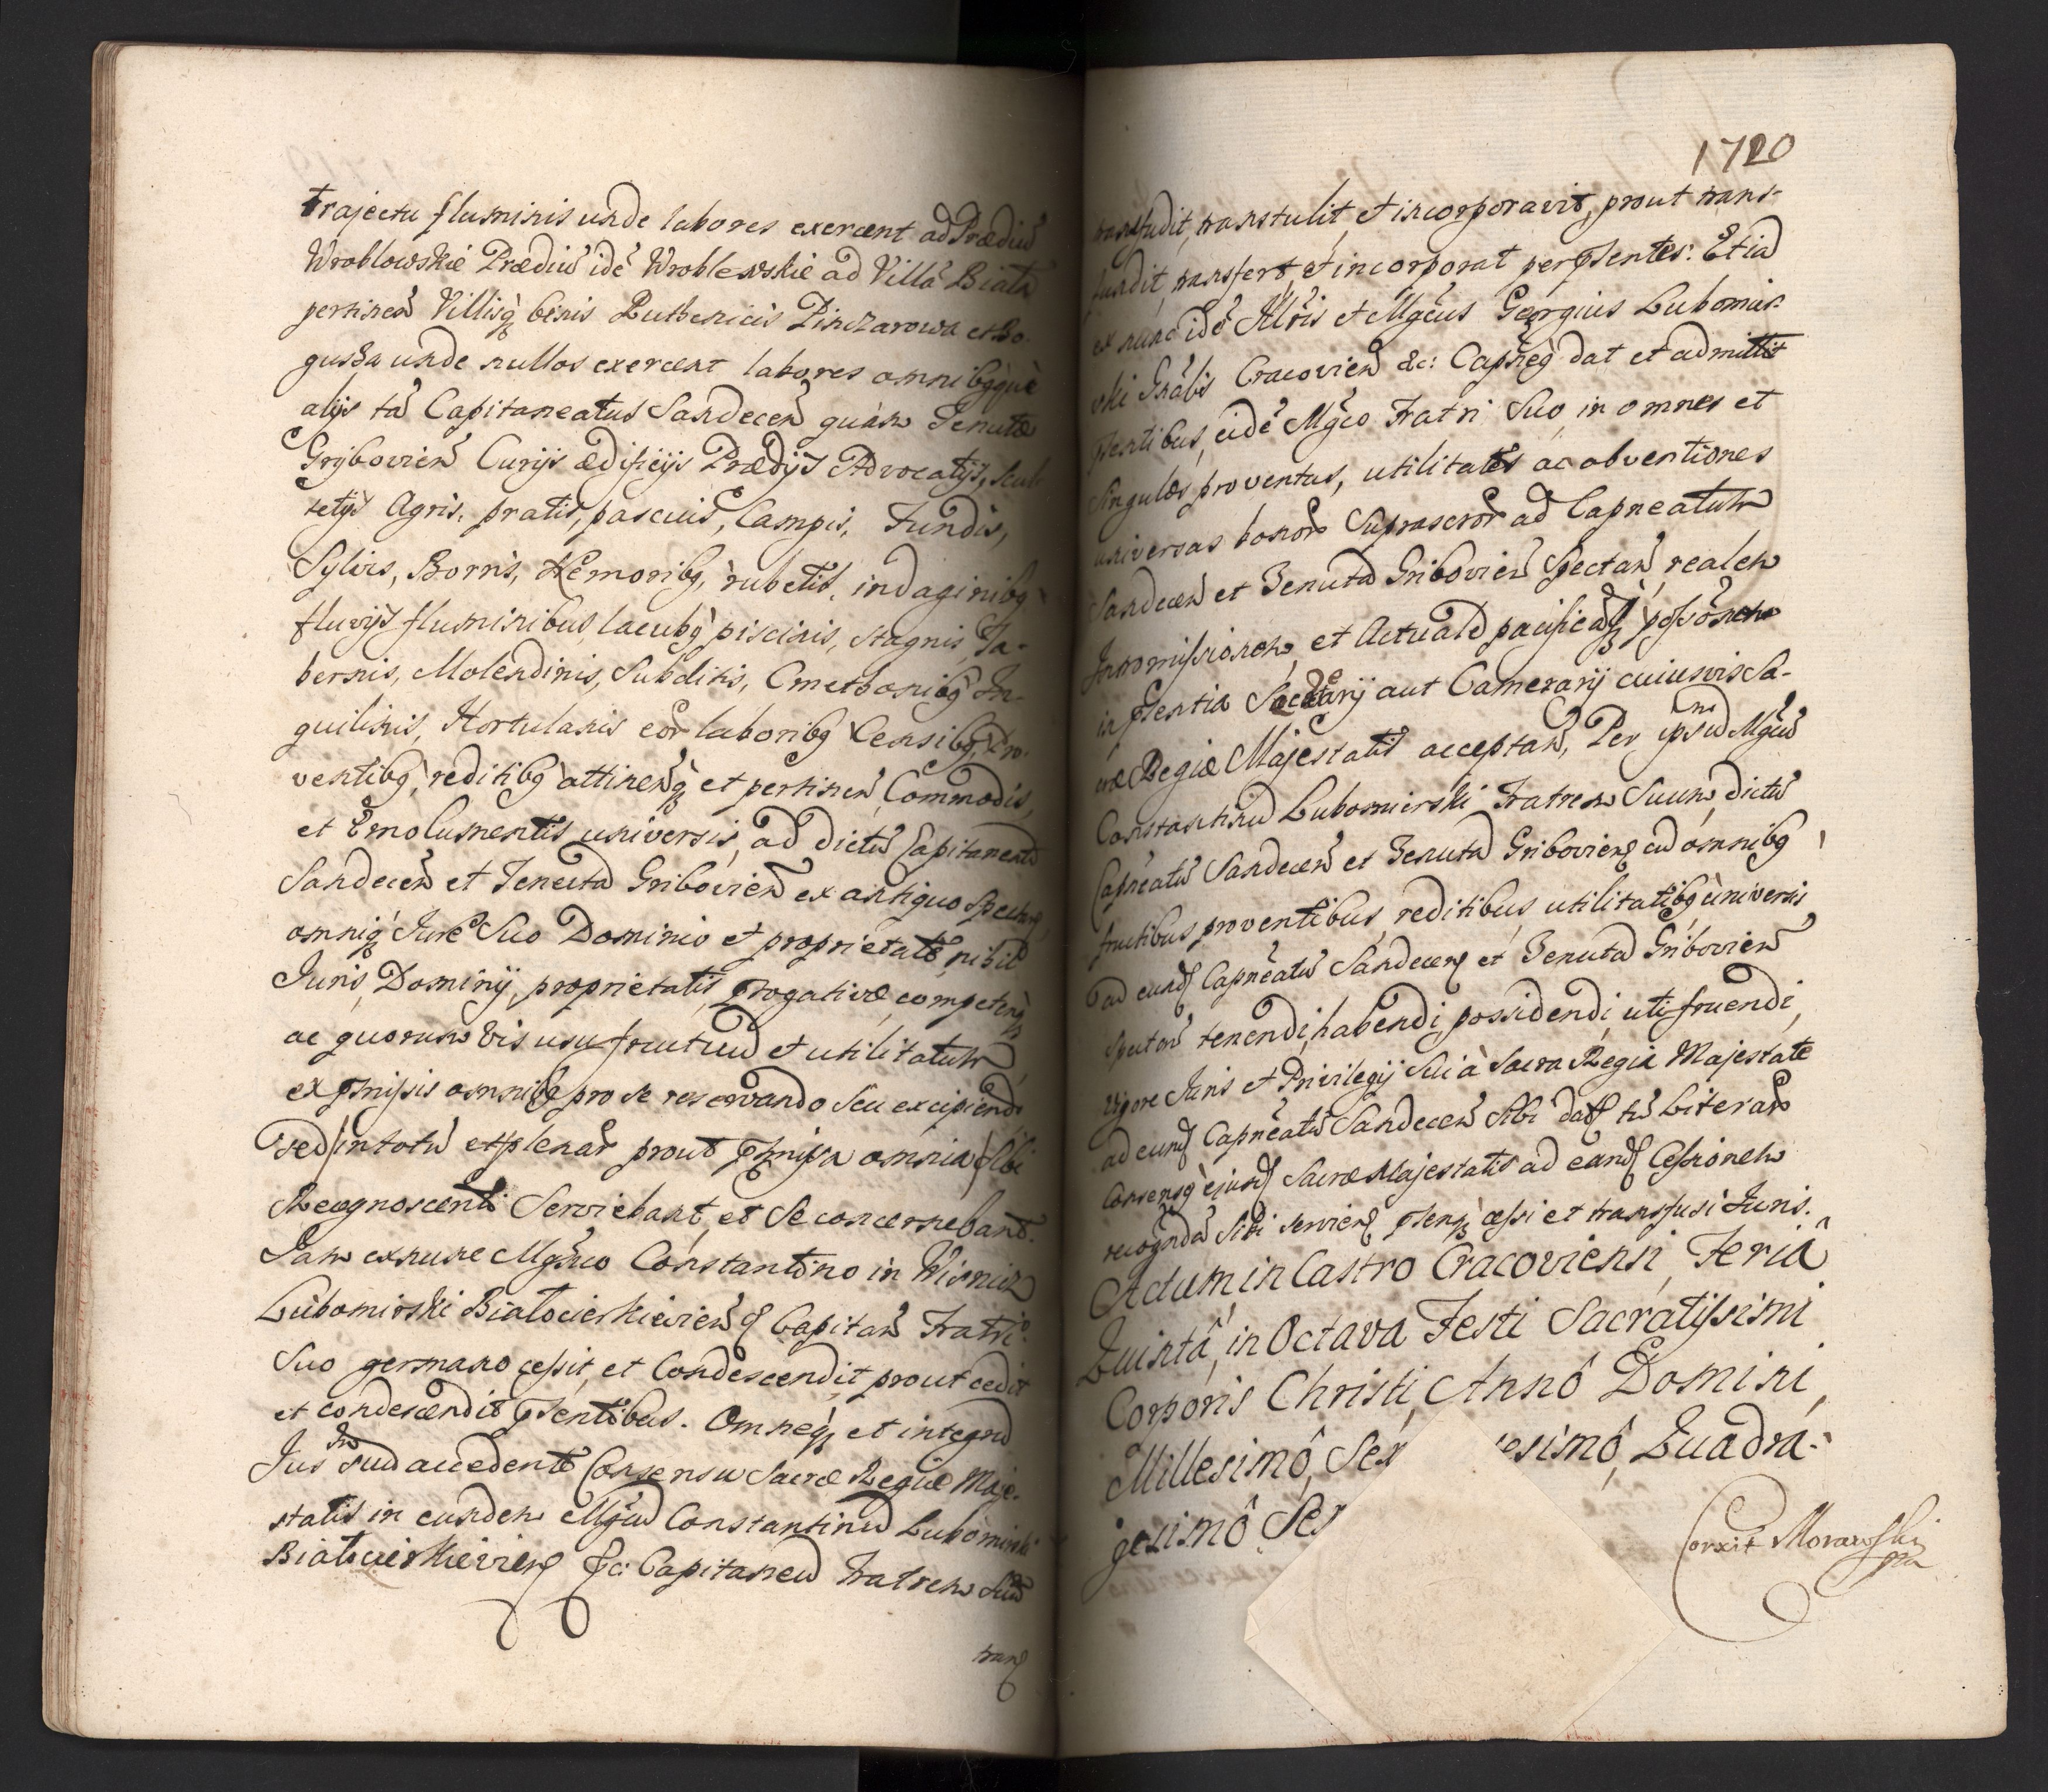 trajectu fluminis unde labores exercent ad Prædiũ
Wroblowskie Prædiũ idẽ Wroblewskie ad Villã Biała
pertineñ Villisq̃ binis Ruthenicis Pinczarowa et Bo-
gusza unde nullos exercent labores omnibq̃ què
alijs tã Capitaneatus Sandeceñ quàm Tenutæ
Grybovieñ Curijs ædificijs Prædijs Advocatijs, Scul-
tetijs Agris, pratis, pascuis, Campis, Fundis,
Sylvis, Borris, Nemoribq, rubetis, indaginibq
fluvijs fluminibus lacubq piscinis, stagnis, Ta-
bernis, Molendinis, Subditis, Cmethonibq In-
quilinis, Hortulanis eoȓ laboribq Censibq, Pro-
ventibq, reditibq attineñq̃ et pertineñ Commodis,
et Emolumentis universis, ad dictũ Capitaneatũ
Sandeceñ et Tenutã Gribovieñ ex antiquo Spectañ
omniq̃ Jure Suo Dominio et proprietate, nihil
Juris, Dominij, proprietatis, prrogativæ competenq̃
ac quorumvis usufructuũ et utilitatum
ex pmissis omnibq pro se reservando seu excipiendo
sed in totũ et plenaȓ prout pmissa omnia sibi
Recognoscenti Serviebant, et Se concernebant.
Jam exnunc Mgñco Constantino in Wisnicz
Lubomirski Białocierkievieñ Capitañ Fratri
Suo germano cessit, et Condescendit prout cedit
et condescendit pñtibus. Omneq̃ et integrũ
Jus suũ accedente Consensu Sacræ Regiæ Maje-
statis in eundem Mgcũ Constantinũ Lubomirski
Białocierkievieñ &c: Capitaneũ Fratrem Suũ
trans
1720
transfudit, transtulit, et incorporavit, prout trans-
fundit, transfert, et incorporat per pñtes: Etiã
ex nunc idẽ Illr̃is et Mgc̃us Georgius Lubomir-
ski Gñalis Cracovieñ &c: Capñeq̃ dat et admittit
pñtibus, eidẽ Mgc̃o Fratri Suo, in omnes et
Singulos proventus, utilitates ac obventiones
universas bonoȓ Suprascroȓ ad Capneatum
Sandeceñ et Tenutã Gribovieñ Spectañ, realem
Intromissionem, et Actualẽ pacificãq̃ possõnem
in pñtia Sectarij aut Camerarij cuiusvis Sa-
cræ Regiæ Majestatis acceptañ, Per ipsũ Mgc̃ũ
Constantinũ Lubomirski Fratrem Suum dictũ
Capñeatũ Sandeceñ et Tenutã Gribovieñ cũ omnibq
fructibus proventibus reditibus utilitatibq universis
ad eund Capñeatũ Sandeceñ et Tenutã Gribovieñ
spectañ tenendi, habendi, possidendi, uti fruendi,
vigore Juris et Privilegij Sui à Sacra Regia Majestate
ad eund Capñeatũ Sandeceñ Sibi dat tũ Literaȓ
Consensq ejusd Sacræ Majestatis ad eand Cessionem
recognndã Sibi servieñ pñtq̃ cessi et transfusi Juris.
Actum in Castro Cracoviensi, Feriâ
Quintâ, in Octava Festi Sacratissimi
Corporis Christi, Annô Domini,
Millesimô, Sex esimô, Quadra-
gesimô Sep
Corxit Morawski
mp